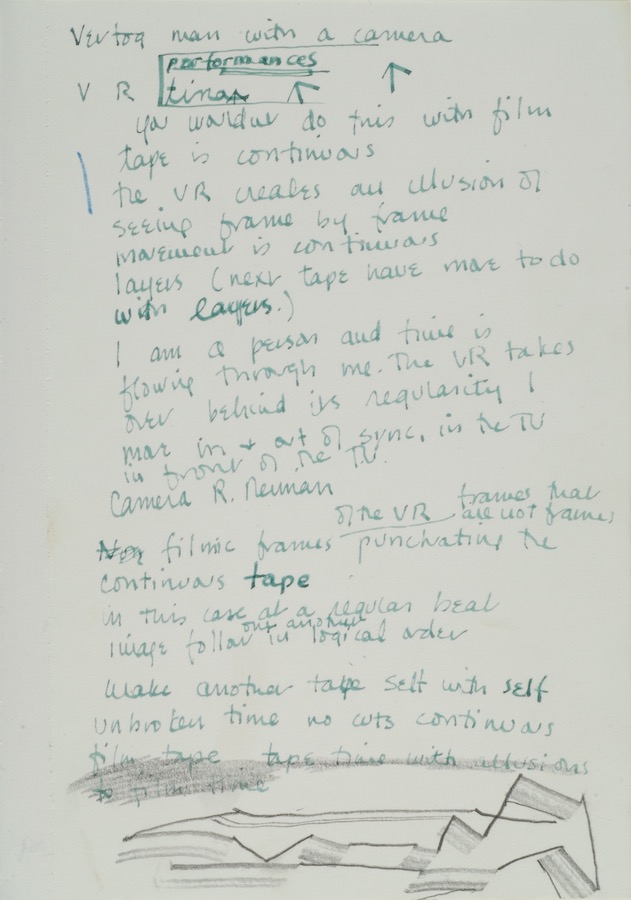 Vertov man with a camera
performances
V R
you wouldnt do this with film
tape is continuous
the VR creates an illusion of
seeing frame by frame
movement is continuous
layers (next tape have more to do
with layers.)
I am a person and time is
flowing through me. The VR takes
over behind its regularity I
move in + out of sync, in the TV
in front of the TV.
Camera R. Neuman
of the VR frames that
are not frames
filmic frames punctuating the
continuous tape
in this case at a regular beat
one another
image follow in logical order
Make another tape self with self
unbroken time no cuts continuous
film tape tape time with illusions
to film time